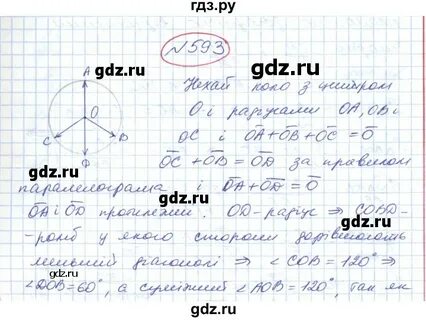 гдз.ру
№593
gdz.ru
gdz.ru
A
Нехай коло з центром
O
О і радіусами OA, OB і
C
B
OC і OA+OB+OC=O
gdz.ru
gdz.ru
OC+OB=OD за правилом
паралелограма і OA+OD=O
OA і OD протилежні. OD-радіус ⇒ COBD-
gdz.ru
gdz.ru
-ромб у якого сторони дорівнюють
меншій діагоналі ⇒ ∠COB=120° і
∠DOB=60°, а суміжний ∠AOB=120°, так як
gdz.ru
gdz.ru